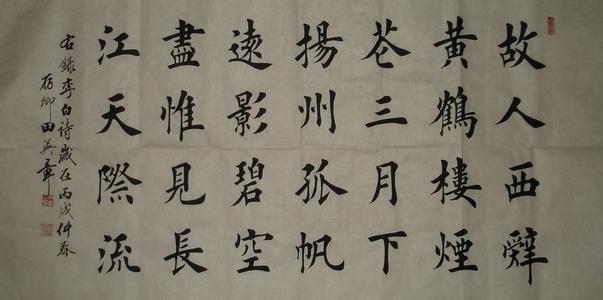 故人西辭
黃鶴樓煙
花三月下
揚州孤帆
遠影碧空
盡惟見長
江天際流
右錄李白詩歲在丙戌仲春
存卿田英章